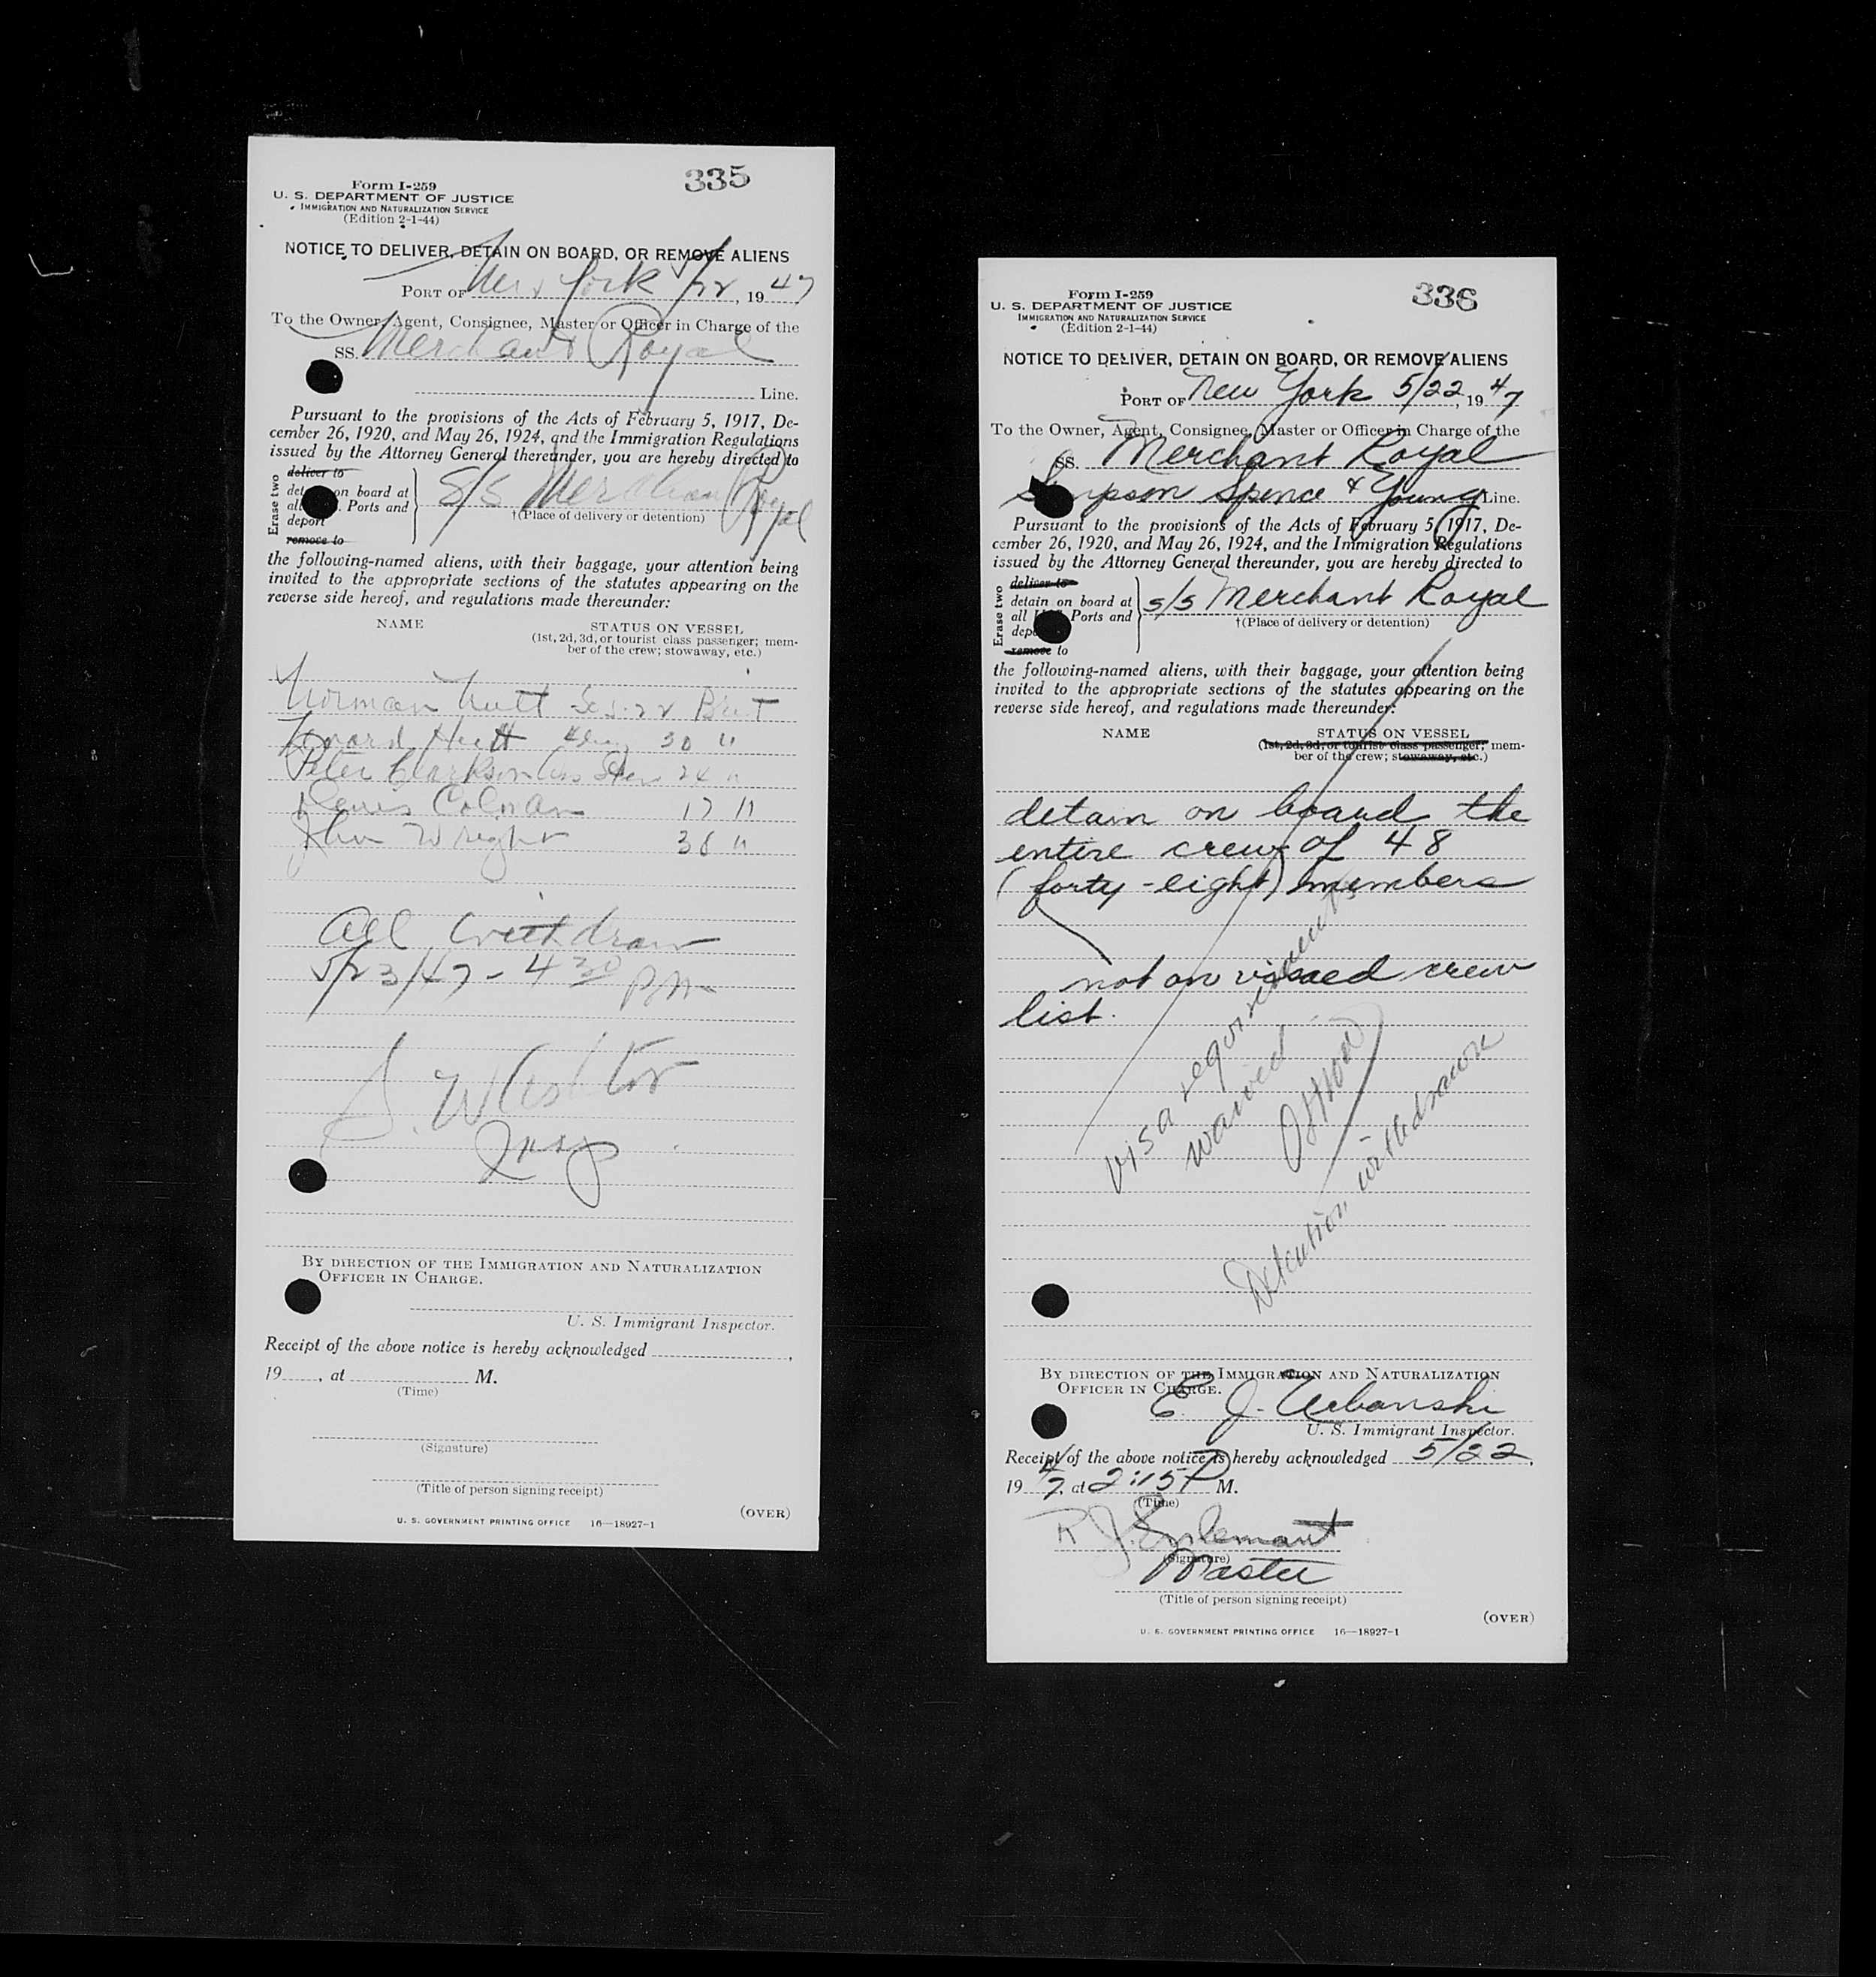 335
Form I-259
U. S. DEPARTMENT OF JUSTICE
IMMIGRATION AND NATURALIZATION SERVICE
(Edition 2-1-44)
NOTICE TO DELIVER, DETAIN ON BOARD, OR REMOVE ALIENS
PORT OF New York 5/22, 1947
To the Owner, Agent, Consignee, Master or Officer in Charge of the
SS. Merchant Royal
Line.
Pursuant to the provisions of the Acts of February 5, 1917, De-
cember 26, 1920, and May 26, 1924, and the Immigration Regulations
issued by the Attorney General thereunder, you are hereby directed to
Erase two
deliver to
on board at
Ports and
deport
remove to
S/S Merchant Royal
†(Place of delivery or detention)
the following-named aliens, with their baggage, your attention being
invited to the appropriate sections of the statutes appearing on the
reverse side hereof, and regulations made thereunder:
NAME STATUS ON VESSEL
(1st, 2d, 3d, or tourist class passenger; mem-
ber of the crew; stowaway, etc.)
Norman Nutt 22 Brit
Hutt 30 "
Peter Clarkson Ass Stew 24 "
Denis Colman 17 "
John Wright 36 "
All withdrawn
5/23/47 - 4 30 PM
S.
Insp
BY DIRECTION OF THE IMMIGRATION AND NATURALIZATION
OFFICER IN CHARGE.
U. S. Immigrant Inspector.
Receipt of the above notice is hereby acknowledged
19 , at M.
(Time)
(Signature)
(Title of person signing receipt)
(OVER)
U. S. GOVERNMENT PRINTING OFFICE 16—18927-1
336
Form I-259
U. S. DEPARTMENT OF JUSTICE
IMMIGRATION AND NATURALIZATION SERVICE
(Edition 2-1-44)
NOTICE TO DELIVER, DETAIN ON BOARD, OR REMOVE ALIENS
PORT OF New York 5/22, 1947
To the Owner, Agent, Consignee, Master or Officer in Charge of the
SS. Merchant Royal
Simpson Spence & Young Line.
Pursuant to the provisions of the Acts of February 5, 1917, De-
cember 26, 1920, and May 26, 1924, and the Immigration Regulations
issued by the Attorney General thereunder, you are hereby directed to
Erase two
deliver to
detain on board at
all Ports and
remove to
s/s Merchant Royal
†(Place of delivery or detention)
the following-named aliens, with their baggage, your attention being
invited to the appropriate sections of the statutes appearing on the
reverse side hereof, and regulations made thereunder:
NAME STATUS ON VESSEL
(1st, 2d, 3d, or tourist class passenger; mem-
ber of the crew; stowaway, etc.)
detain on board the
entire crew of 48
(forty-eight) members
not on visaed crew
list.
visa requirements
waived
Detention withdrawn
BY DIRECTION OF THE IMMIGRATION AND NATURALIZATION
OFFICER IN CHARGE.
E. J. Urbanski
U. S. Immigrant Inspector.
Receipt of the above notice is hereby acknowledged 5/22,
1947, at 2:15 P M.
(Time)
R J.
(Signature)
Master
(Title of person signing receipt)
(OVER)
U. S. GOVERNMENT PRINTING OFFICE 16—18927-1